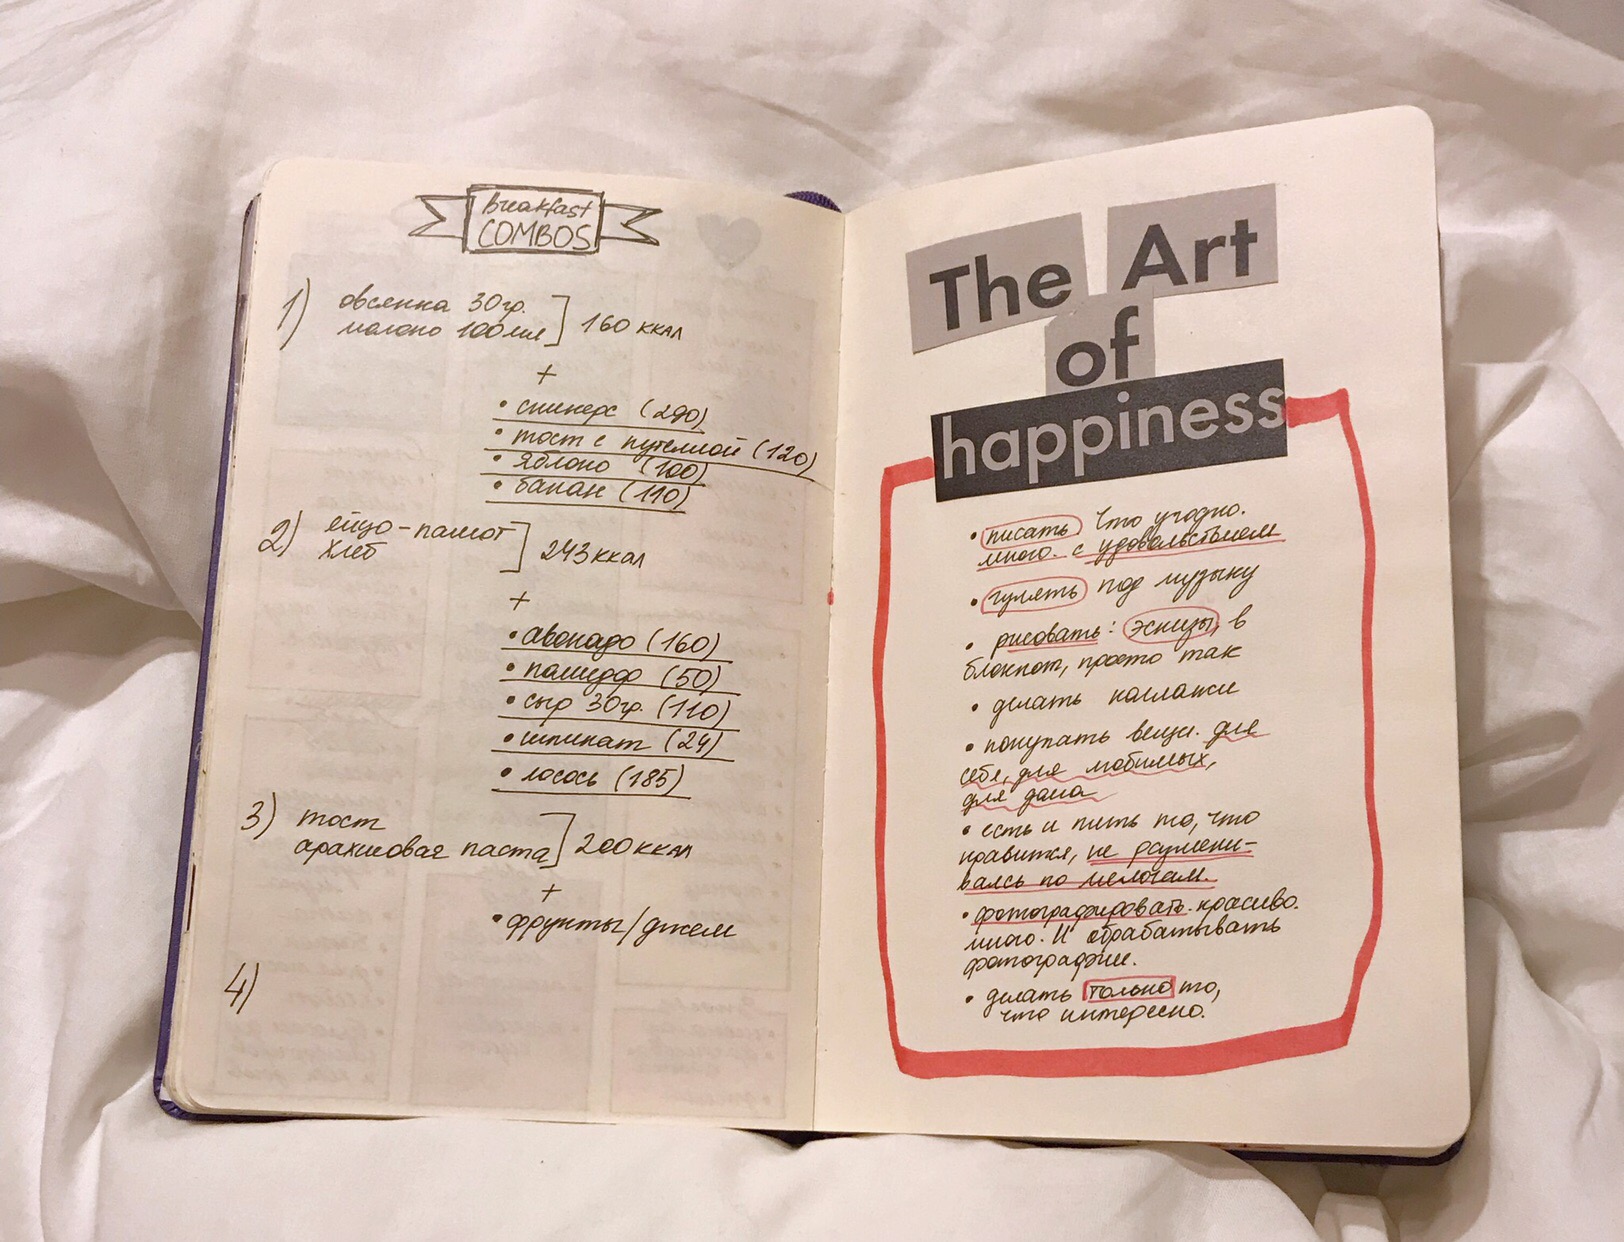 breakfast
COMBOS
1) овсянка 30гр.
молоко 100мл
160 ккал
+
• сникерс (290)
• тост с нутеллой (120)
• яблоко (100)
• банан (110)
2) яйцо-пашот
хлеб
243 ккал
+
• авокадо (160)
• помидор (50)
• сыр 30гр. (110)
• шпинат (24)
• лосось (185)
3) тост
арахисовая паста
200 ккал
+
• фрукты/джем
4)
The Art
of
happiness
• писать что угодно.
много. с удовольствием
• гулять под музыку
• рисовать: эскизы, в
блокнот, просто так
• делать коллажи
• покупать вещи. для
себя, для любимых,
для дома
• есть и пить то, что
нравится, не размени-
ваясь по мелочам.
• фотографировать. красиво.
много. И обрабатывать
фотографии.
• делать только то,
что интересно.